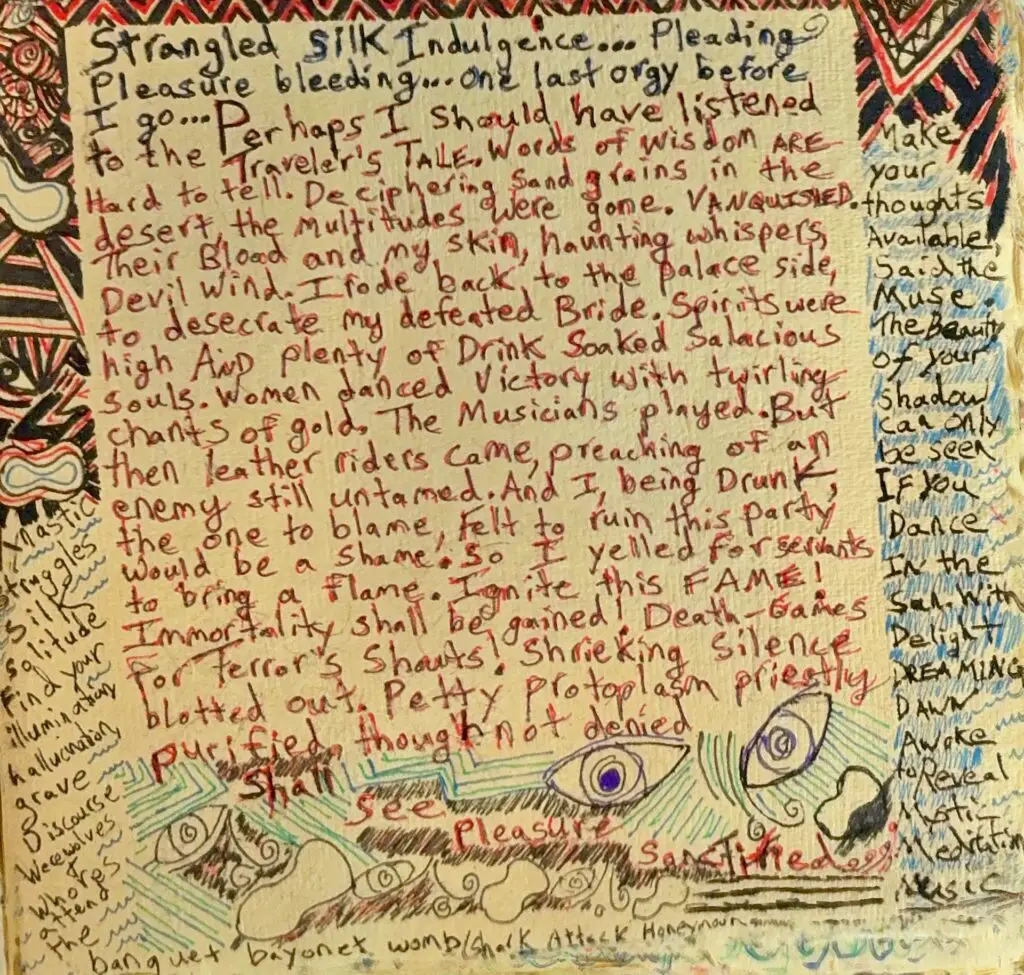 Strangled Silk Indulgence... Pleading
Pleasure bleeding... one last orgy before
I go... Perhaps I should have listened
to the Traveler's TALE. Words of Wisdom ARE
Hard to tell. Deciphering Sand grains in the
desert, the multitudes were gone. VANQUISHED.
Their Blood and my skin, haunting whispers,
Devil Wind. I rode back to the palace side,
to desecrate my defeated Bride. Spirits were
high AND plenty of Drink Soaked Salacious
souls. Women danced Victory with twirling
chants of gold. The Musicians played. But
then leather riders came, preaching of an
enemy still untamed. And I, being Drunk,
the one to blame, felt to ruin this party
would be a shame. So I yelled for servants
to bring a flame. Ignite this FAME!
Immortality shall be gained! Death-Games
For Terror's Shouts! Shrieking Silence
blotted out. Petty protoplasm priestly
purified, though not denied
Shall
see
Pleasure
Sanctified...
Make
your
thoughts
Available,
Said the
Muse.
The Beauty
of your
shadow
can only
be seen
If you
Dance
In the
Sun. With
Delight
DREAMING
DAWN
Awoke
to Reveal
Meditation
Music
struggles
Silk
Solitude
Find your
illuminatory
hallucination,
grave
Discourse
Werewolves
&
Whores
attend
the
banquet bayonet womb/Shark Attack Honeymoon